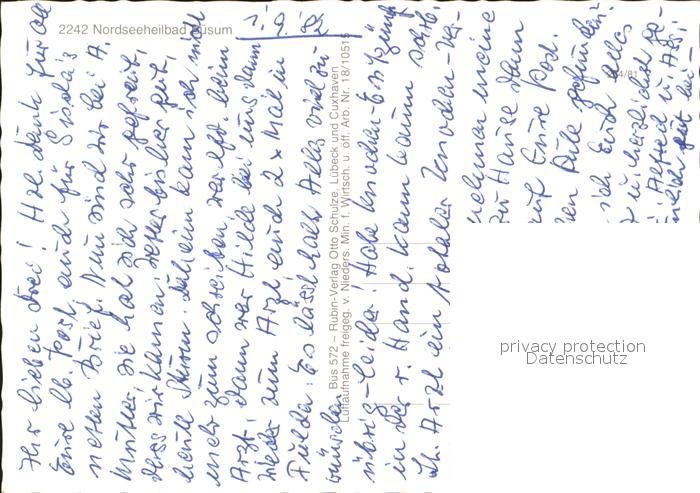 2242 Nordseeheilbad Büsum
1.9.82
Ihr lieben Drei! Hzl. Dank für all
Eure lb Post, auch für Gisela's
netten Brief. Nun sind wir bei A.
Mutter, sie hat sich sehr gefreut,
dass wir kamen. Wetter bisher gut,
heute Sturm. Allein kann ich nicht
mehr zum schreiben, war erst beim
Arzt, dann war Hilde bei uns dann
wieder zum Arzt auch 2 x Mal in
Fulda. Es lässt halt Alles viel zu
wünschen
übrig - leider! Habe Knochen-
in der r. Hand, kann kaum schrb
Lt. Arzt ein totaler Knochen-Ver-
nehmen meine
zu Hause dann
auf Eure Post.
gefunden?
sich Euch alles
u. herzlichst ge-
Alfred u.
gut bei-
Büs 572 – Rubin-Verlag Otto Schulze, Lübeck und Cuxhaven
Luftaufnahme freigeg. v. Nieders. Min. f. Wirtsch. u. öff. Arb. Nr. 18/10515
4/81
privacy protection
Datenschutz